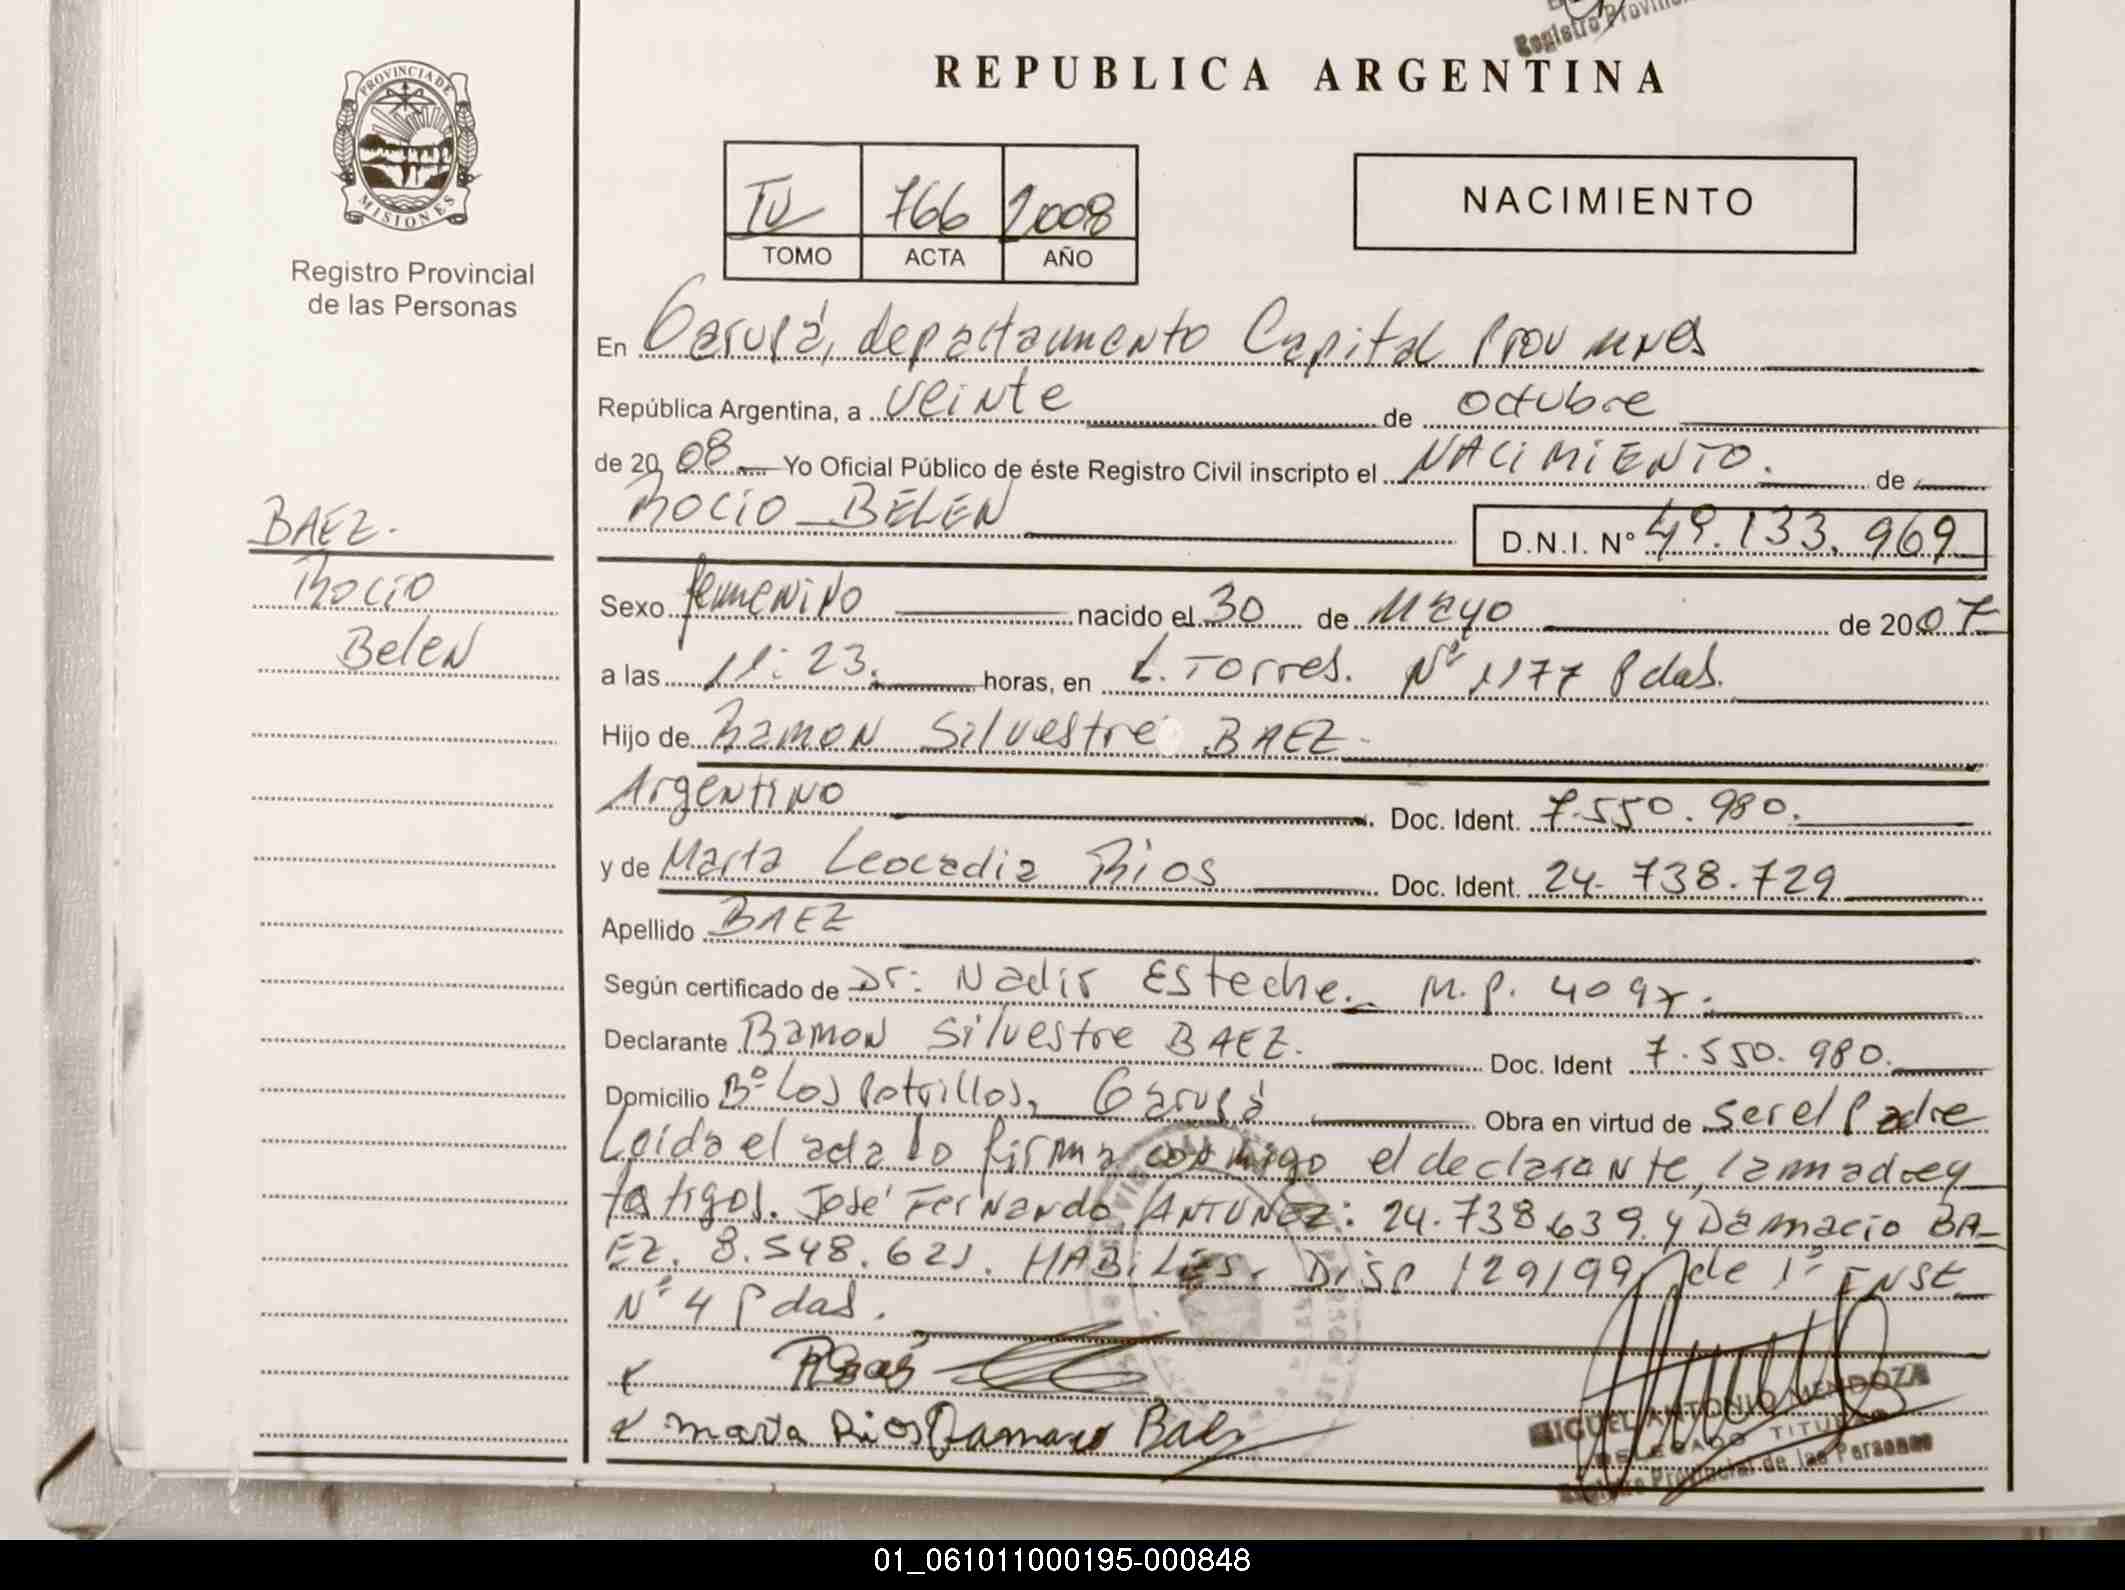 Registro Provincial
REPUBLICA ARGENTINA
PROVINCIA DE
MISIONES
Registro Provincial
de las Personas
IV 766 2008
TOMO ACTA AÑO
NACIMIENTO
En Garupá, departamento Capital Prov
República Argentina, a veinte de octubre
de 2008 Yo Oficial Público de éste Registro Civil inscripto el NACIMIENTO. de
ROCIO BELEN D.N.I. N° 49.133.969
BAEZ.
Rocio
Belen
Sexo femenino nacido el 30 de Mayo de 2007
a las 11:23. horas, en L. Torres. N° 1177 Pdas.
Hijo de Ramon Silvestre BAEZ
Argentino Doc. Ident. 7.550.980.
y de Marta Leocadia Rios Doc. Ident. 24.738.729
Apellido BAEZ
Según certificado de Dr: Nadir Esteche. M.P. 409
Declarante Ramon Silvestre BAEZ. Doc. Ident 7.550.980.
Domicilio B° Los Potrillos, Garupá Obra en virtud de ser el Padre
Leida el acta lo firma conmigo el declarante, la madre y
testigos. José Fernando ANTUNEZ: 24.738.639. y Damacio BA-
EZ. 8.548.621. HABILES. Disp 129/99 de 1° INST
N° 4 Pdas.
Marta Rios Damacio Baez
MIGUEL ANTONIO MENDOZA
DELEGADO TITULAR
Registro Provincial de las Personas
01_061011000195-000848